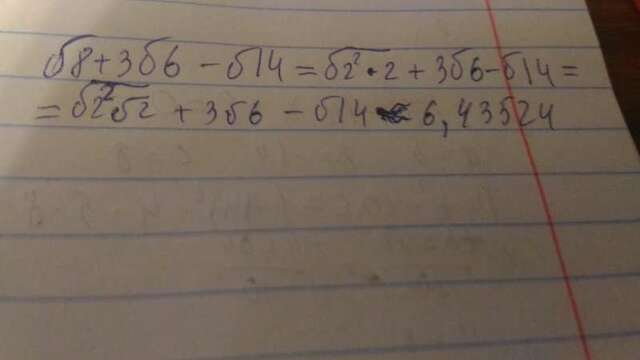 √8+3√6-√14=√2²·2+3√6-√14=
=√2²√2+3√6-√14 6,43524